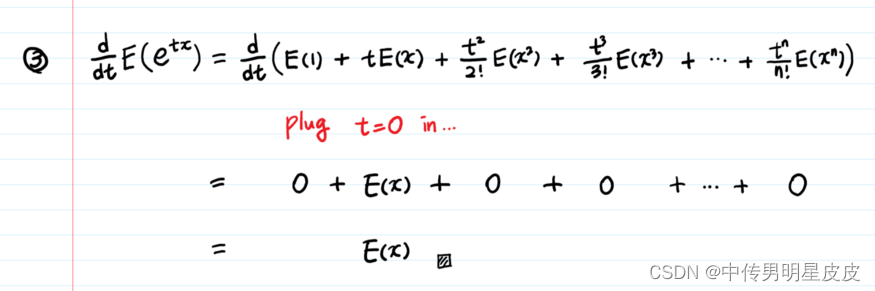 ③ d/dt E(e^{tx}) = d/dt (E(1) + tE(x) + t²/2! E(x²) + t³/3! E(x³) + ⋯ + tⁿ/n! E(xⁿ))
plug t=0 in...
= 0 + E(x) + 0 + 0 + ⋯ + 0
= E(x) ▨
CSDN @中传男明星皮皮